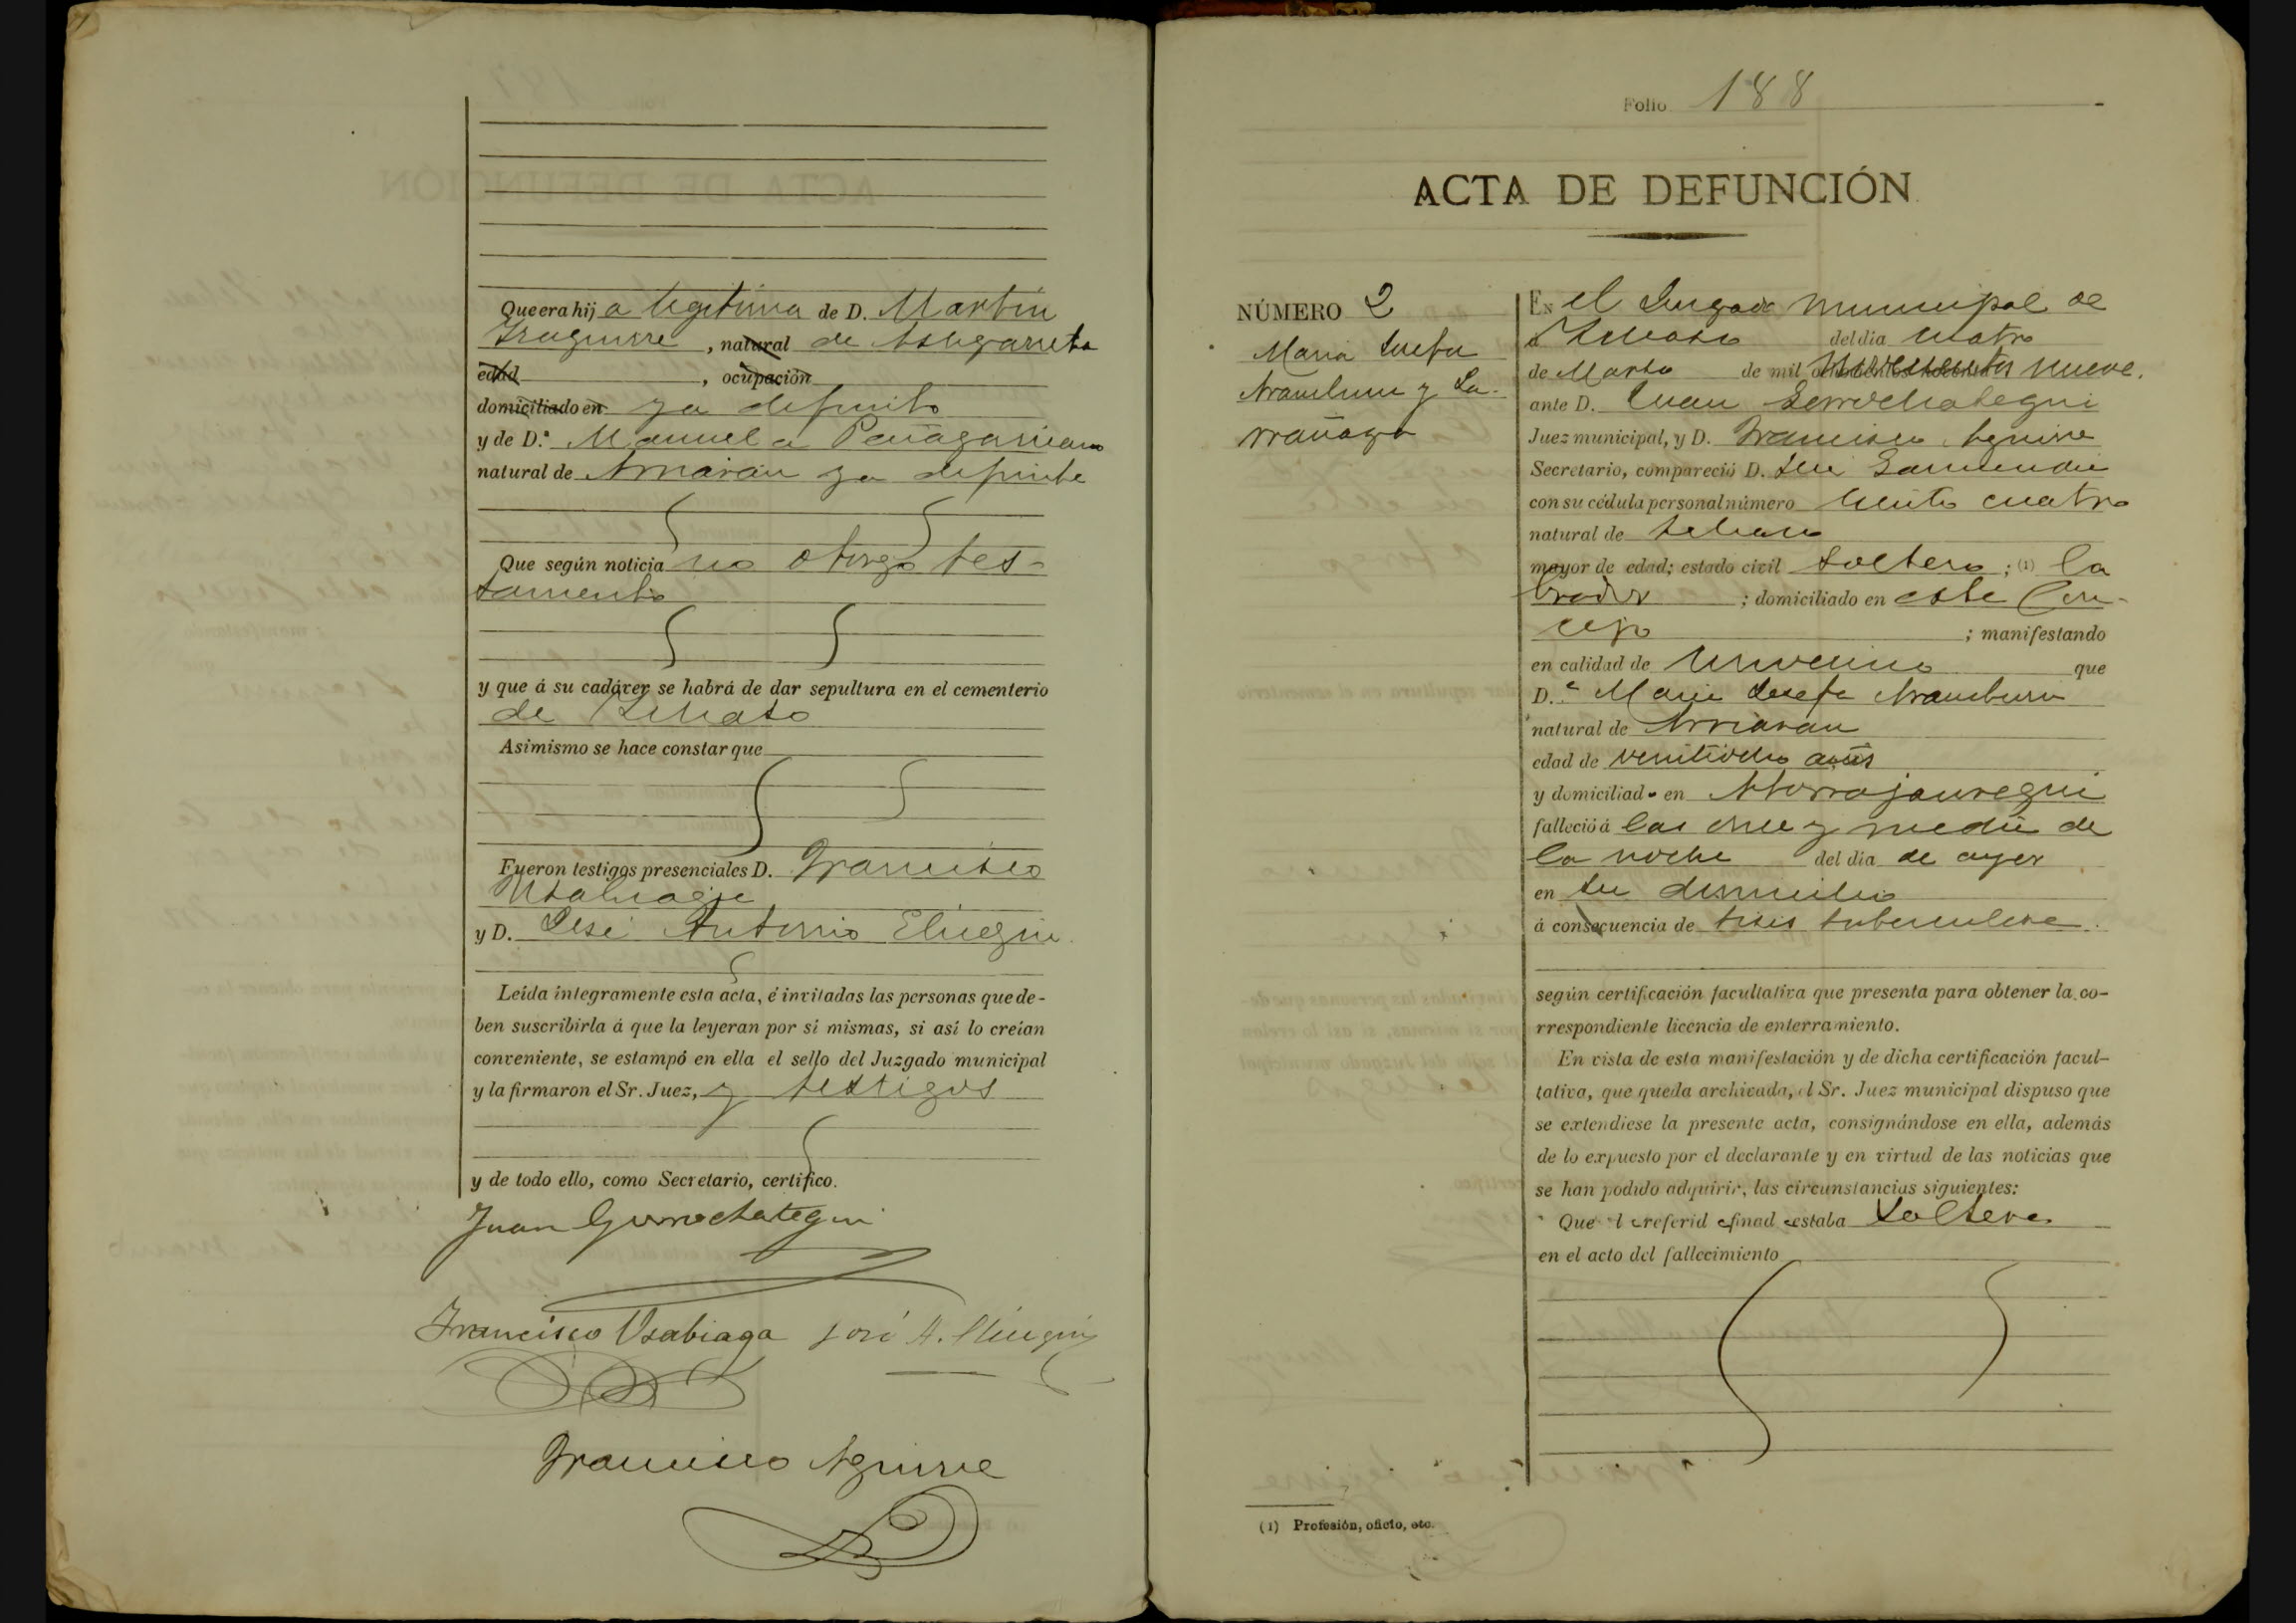 Que era hija legitima de D. Martin
Iraguirre, natural de Astigarreta
edad, ocupación
domiciliado en ya difunto
y de D.ª Manuela Pañagaricano
natural de Arriaran ya difunta
Que según noticia no otorgó tes-
tamento
y que á su cadáver se habrá de dar sepultura en el cementerio
de Ichaso
Asimismo se hace constar que
Fueron testigos presenciales D. Francisco
Usabiaga
y D. José Antonio Elicegui
Leída íntegramente esta acta, é invitadas las personas que de-
ben suscribirla á que la leyeran por sí mismas, si así lo creían
conveniente, se estampó en ella el sello del Juzgado municipal
y la firmaron el Sr. Juez, y testigos
y de todo ello, como Secretario, certifico.
Juan Gorrochategui
Francisco Usabiaga José A. Elicegui
Francisco Aguirre
Folio 188
ACTA DE DEFUNCIÓN
NÚMERO 2
Maria Josefa
Aramburu y La-
rrañaga
En el Juzgado municipal de
Ichaso del dia cuatro
de Marzo de mil novecientos nueve.
ante D. Juan Gorrochategui
Juez municipal, y D. Francisco Aguirre
Secretario, compareció D. José Garmendia
con su cédula personal número ciento cuatro
natural de Ichaso
mayor de edad; estado civil soltero; (1) la
brador; domiciliado en este Con-
cejo; manifestando
en calidad de convecino que
D.ª Maria Josefa Aramburu
natural de Arriaran
edad de veintiocho años
y domiciliad en Atorrajauregui
falleció á las once y media de
la noche del dia de ayer
en su domicilio
á consecuencia de tisis tuberculosa.
según certificación facultativa que presenta para obtener la co-
rrespondiente licencia de enterramiento.
En vista de esta manifestación y de dicha certificación facul-
tativa, que queda archivada, el Sr. Juez municipal dispuso que
se extendiese la presente acta, consignándose en ella, además
de lo expuesto por el declarante y en virtud de las noticias que
se han podido adquirir, las circunstancias siguientes:
Que l referid finad estaba soltera
en el acto del fallecimiento
(1) Profesión, oficio, etc.